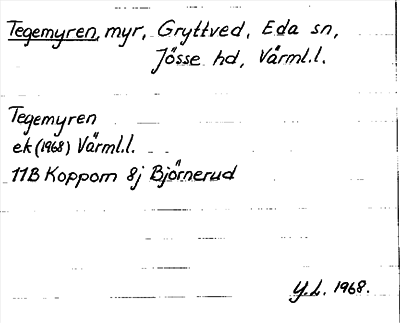 Tegemyren, myr, Gryttved, Eda sn,
Jösse hd, Värml.l.
Tegemyren
ek (1968) Värml.l.
11B Koppom 8j Björnerud
Y.L. 1968.